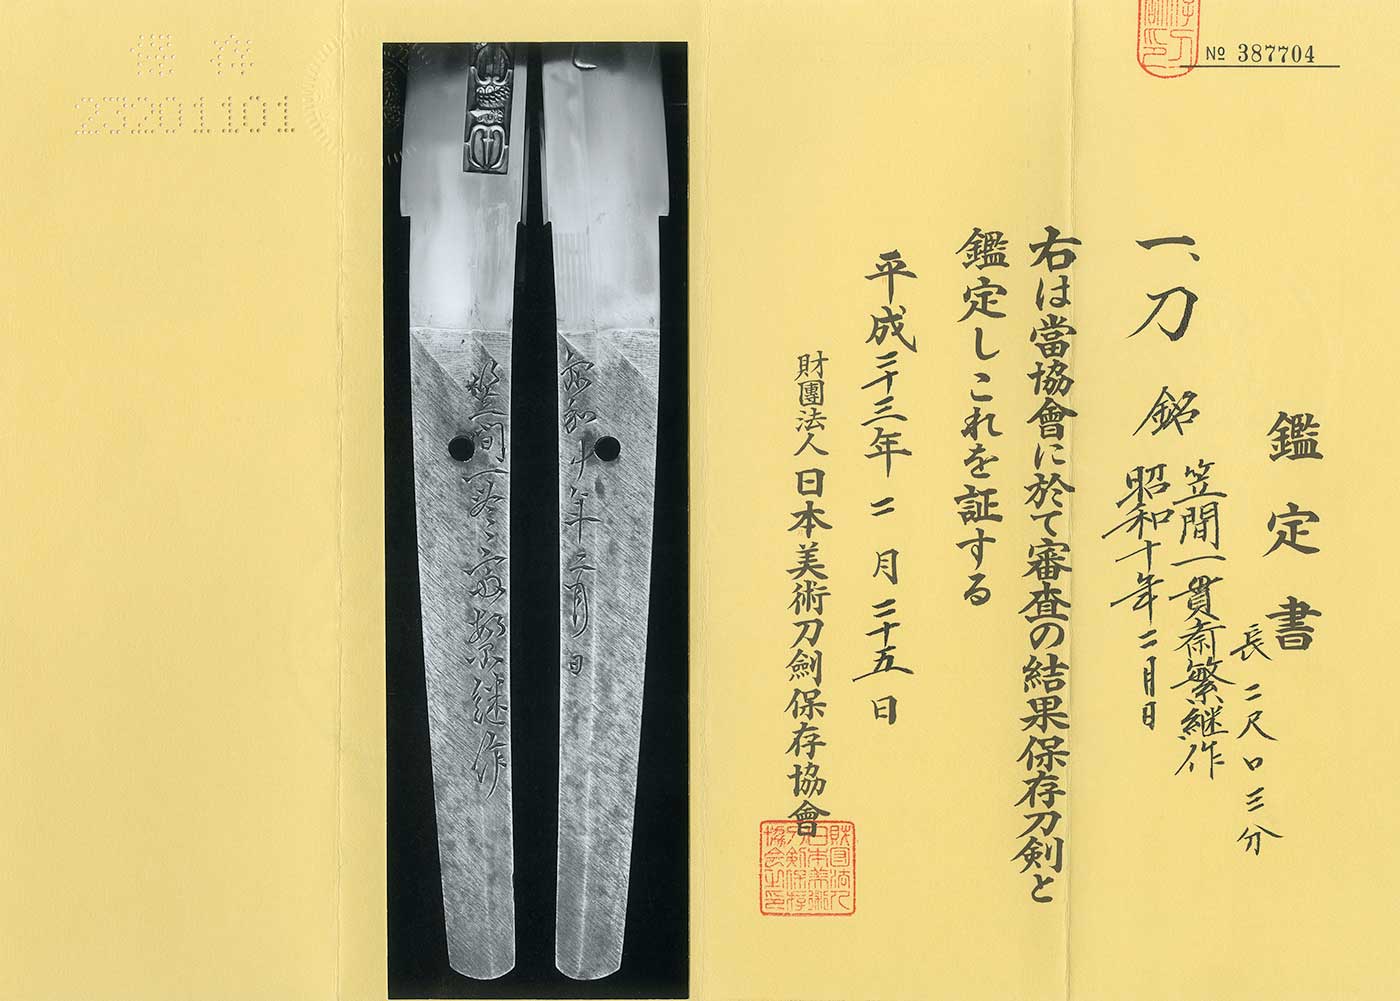 № 387704
鑑定書
一、刀 銘 笠間一貫斎繁継作
昭和十年二月日
長二尺口三分
右は當協會に於て審査の結果保存刀剣と
鑑定しこれを証する
平成二十三年二月二十五日
財團法人日本美術刀劍保存協會
保存
23201101
笠間一貫斎繁継作
昭和十年二月日